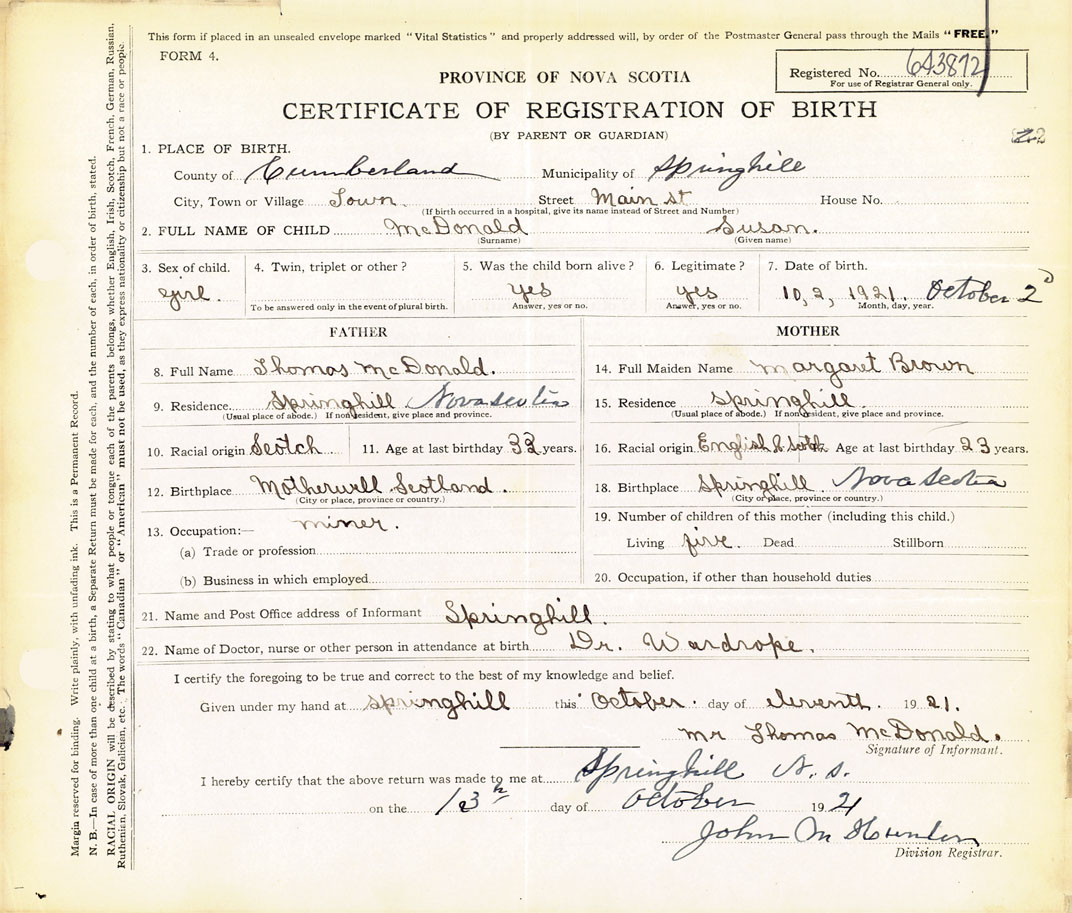 This form if placed in an unsealed envelope marked "Vital Statistics" and properly addressed will, by order of the Postmaster General pass through the Mails "FREE."
FORM 4.
Registered No. 643872
For use of Registrar General only.
PROVINCE OF NOVA SCOTIA
CERTIFICATE OF REGISTRATION OF BIRTH
(BY PARENT OR GUARDIAN)
1. PLACE OF BIRTH.
County of Cumberland Municipality of Springhill
City, Town or Village Town Street Main st House No.
(If birth occurred in a hospital, give its name instead of Street and Number)
2. FULL NAME OF CHILD McDonald Susan.
(Surname) (Given name)
3. Sex of child. 4. Twin, triplet or other? 5. Was the child born alive? 6. Legitimate? 7. Date of birth.
girl. yes yes 10, 2, 1921. October 2d
To be answered only in the event of plural birth. Answer, yes or no. Answer, yes or no. Month, day, year.
FATHER
8. Full Name Thomas McDonald.
9. Residence Springhill Nova Scotia
(Usual place of abode.) If nonresident, give place and province.
10. Racial origin Scotch 11. Age at last birthday 33 years.
12. Birthplace Motherwell Scotland.
(City or place, province or country.)
13. Occupation:— miner.
(a) Trade or profession
(b) Business in which employed
MOTHER
14. Full Maiden Name Margaret Brown
15. Residence Springhill.
(Usual place of abode.) If nonresident, give place and province.
16. Racial origin English & Age at last birthday 23 years.
18. Birthplace Springhill. Nova Scotia
(City or place, province or country.)
19. Number of children of this mother (including this child.)
Living five. Dead Stillborn
20. Occupation, if other than household duties
21. Name and Post Office address of Informant Springhill.
22. Name of Doctor, nurse or other person in attendance at birth Dr. Wardrope.
I certify the foregoing to be true and correct to the best of my knowledge and belief.
Given under my hand at springhill this October. day of eleventh. 19 21.
mr Thomas McDonald.
Signature of Informant.
I hereby certify that the above return was made to me at Springhill N. S.
on the 13th day of October 19 21
John M
Division Registrar.
Margin reserved for binding. Write plainly, with unfading ink. This is a Permanent Record.
N. B.—In case of more than one child at a birth, a Separate Return must be made for each, and the number of each, in order of birth, stated.
RACIAL ORIGIN will be described by stating to what people or tongue each of the parents belongs, whether English, Irish, Scotch, French, German, Russian,
Ruthenian, Slovak, Galician, etc. The words "Canadian" or "American" must not be used, as they express nationality or citizenship but not a race or people.